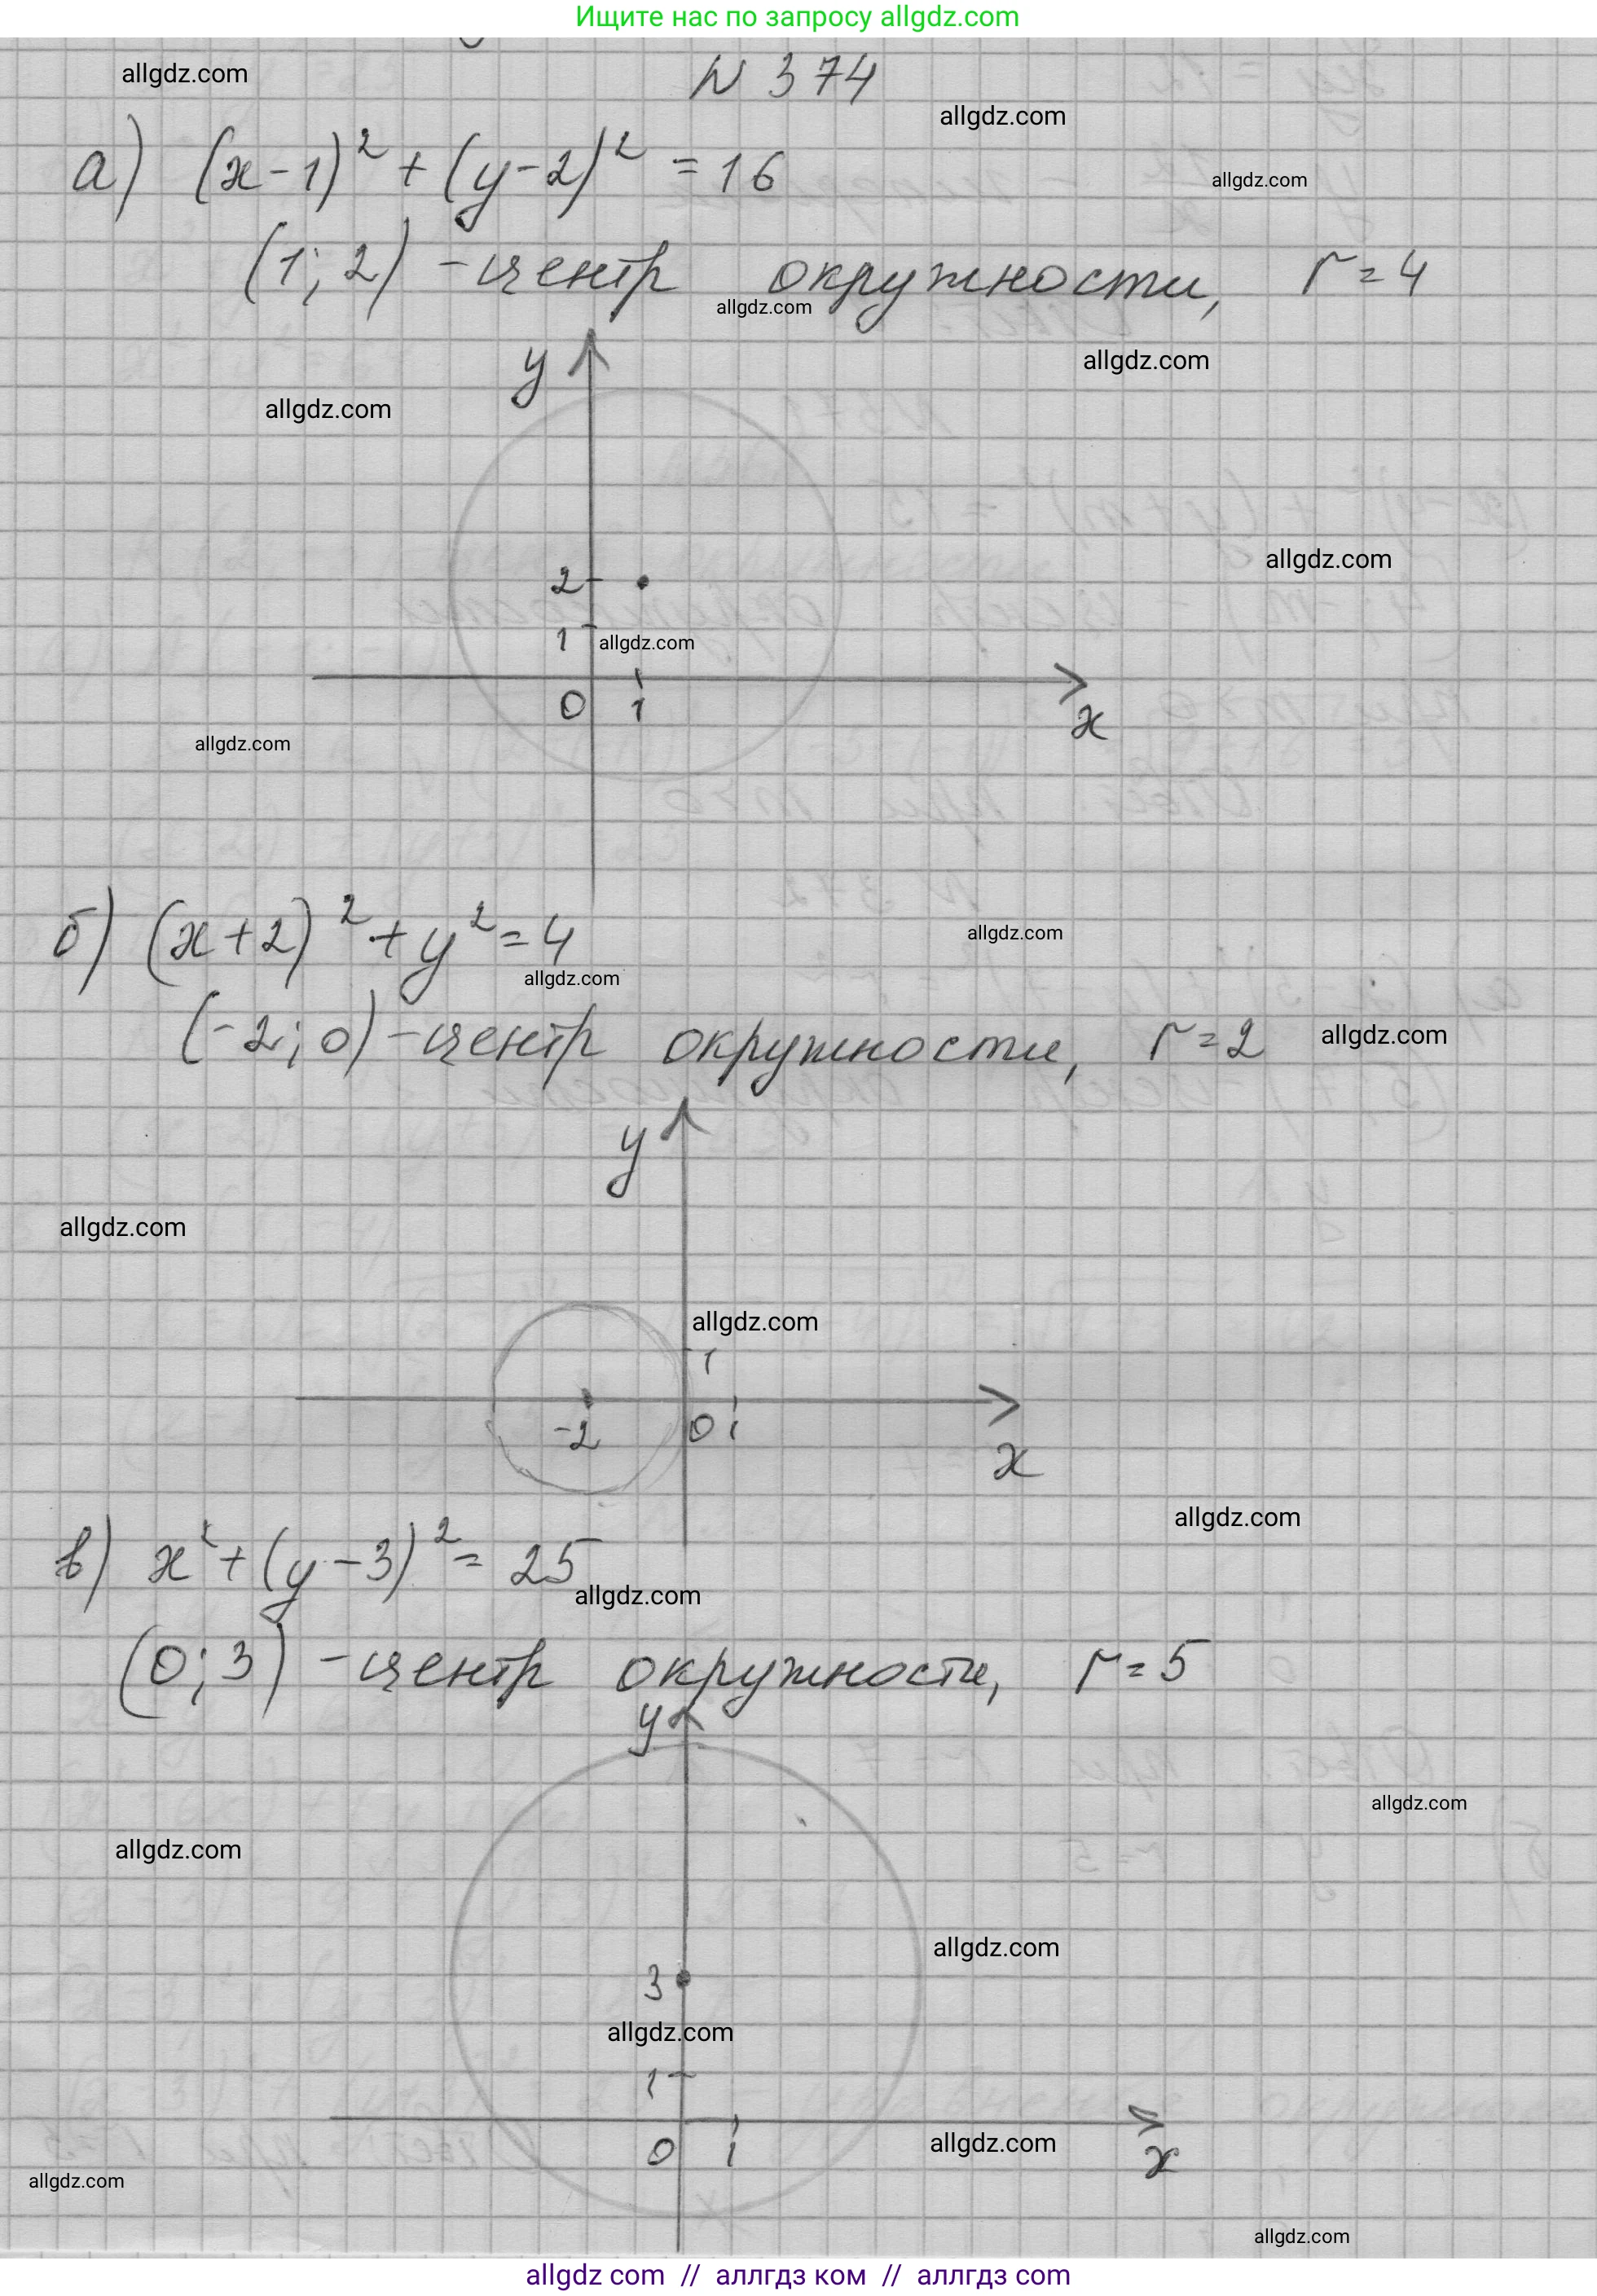 Ищите нас по запросу allgdz.com
allgdz.com
N 374
allgdz.com
а) (x-1)² + (y-2)² = 16
allgdz.com
(1; 2) - центр окружности, r = 4
allgdz.com
y
allgdz.com
allgdz.com
allgdz.com
2
1
allgdz.com
0 1
x
allgdz.com
б) (x+2)² + y² = 4
allgdz.com
allgdz.com
(-2; 0) - центр окружности, r = 2
allgdz.com
y
allgdz.com
allgdz.com
1
-2 0 1
x
allgdz.com
в) x² + (y-3)² = 25
allgdz.com
(0; 3) - центр окружности, r = 5
y
allgdz.com
allgdz.com
allgdz.com
3
allgdz.com
1
0 1
allgdz.com
x
allgdz.com
allgdz.com
allgdz com // аллгдз ком // аллгдз com